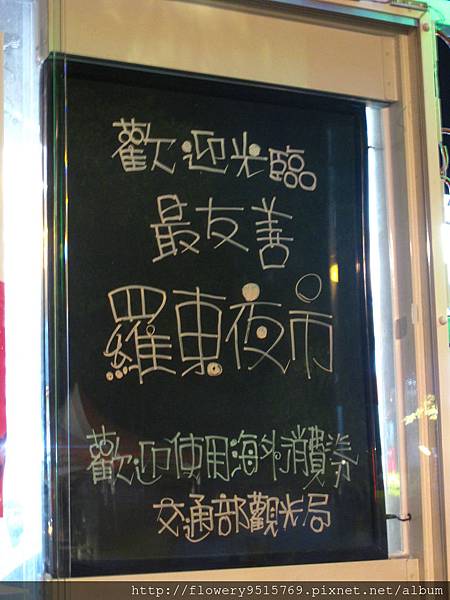 歡迎光臨
最友善
羅東夜市
歡迎使用海外消費券
交通部觀光局
http://flowery9515769.pixnet.net/album